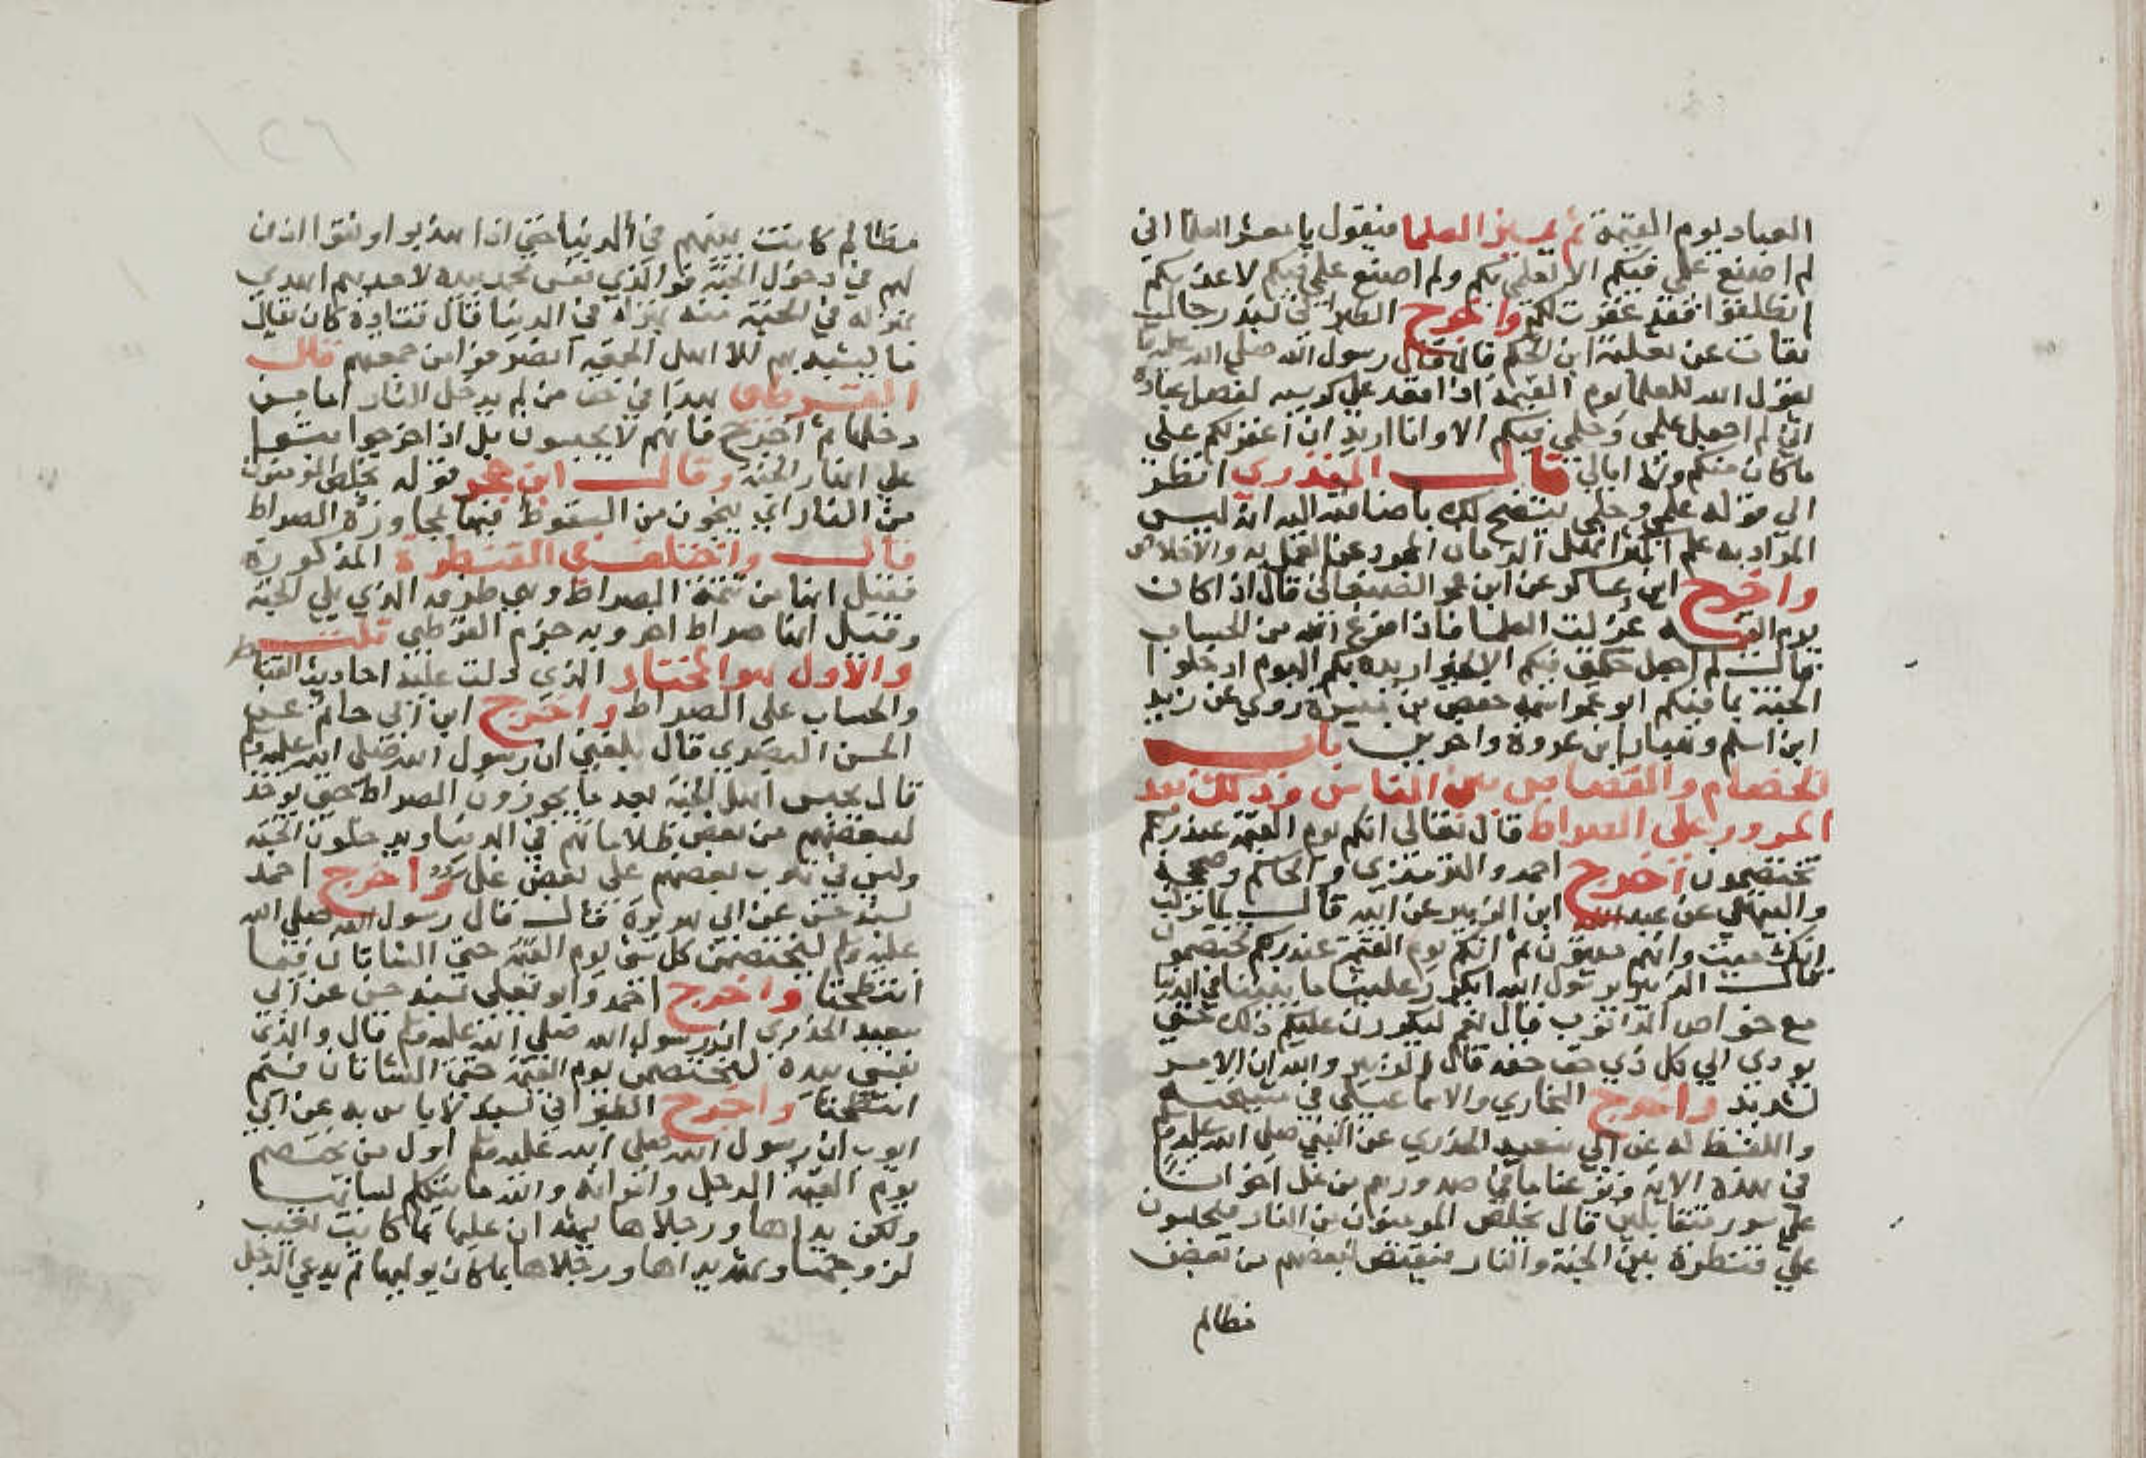 العباد يوم القيمة ثم يميز العلما فيقول يا معشر العلما اني
لم اضع علمي فيكم الا لعلمي بكم ولم اضع علمي فيكم لاعذبكم
انطلقوا فقد غفرت لكم واخرج الطبراني بسند رجاله
ثقات عن ثعلبة ابن الحكم قال قال رسول الله صلى الله عليه وسلم
يقول الله للعلما يوم القيمة اذا قعد على كرسيه لفصل عباده
اني لم اجعل علمي وحلمي فيكم الا وانا اريد ان اغفر لكم على
ما كان منكم ولا ابالي قال المنذري انظر
الى قوله علمي وحلمي يتضح لك باضافته اليه انه ليس
المراد به علم اكثر اهل الزمان المجرد عن العمل به والاخلاص
واخرج ابن عساكر عن ابن عمر الصنعاني قال اذا كان
يوم القيمة عزلت العلما فاذا فرغ الله من الحساب
قال لم اجعل حكمتي فيكم الا لخير اريده بكم اليوم ادخلوا
الجنة بما فيكم ابو عمر اسمه حفص بن ميسرة روى عن زيد
ابن اسلم وهشام ابن عروة واخرين باب
الخصام والقصاص بين الناس وذلك بعد
المرور على الصراط قال تعالى انكم يوم القيمة عند ربكم
تختصمون اخرج احمد والترمذي والحاكم وصححه
والبيهقي عن عبد الله ابن الزبير عن ابيه قال لما نزلت
انك ميت وانهم ميتون ثم انكم يوم القيمة عند ربكم تختصمون
قال الزبير يا رسول الله ايكرر علينا ما بيننا في الدنيا
مع خواص الذنوب قال نعم ليكررن عليكم ذلك حتى
يودى الى كل ذي حق حقه قال الزبير والله ان الامر
لشديد واخرج البخاري والاسماعيلي في
واللفظ له عن ابي سعيد الخدري عن النبي صلى الله عليه وسلم
في هذه الاية ونزعنا ما في صدورهم من غل اخوانا
على سرر متقابلين قال يخلص المومنون من النار فيحبسون
على قنطرة بين الجنة والنار فيقتص لبعضهم من بعض
مظالم
مظالم كانت بينهم في الدنيا حتى اذا هذبوا ونقوا اذن
لهم في دخول الجنة فوالذي نفس محمد بيده لاحدهم اهدى
بمنزله في الجنة منه بمنزله في الدنيا قال قتادة كان يقال
ما يشبه بهم الا اهل الجمعة انصرفوا من جمعتهم قال
القرطبي هذا في حق من لم يدخل النار اما من
دخلها ثم اخرج فانهم لا يحبسون بل اذا اخرجوا بثوا
على انهار الجنة وقال ابن حجر قوله يخلص المومنون
من النار اي ينجون من السقوط فيها بمجاوزة الصراط
قال واختلف في القنطرة المذكورة
فقيل انها من تتمة الصراط وهي طرفه الذي يلي الجنة
وقيل انها صراط اخر وبه جزم القرطبي قلت
والاول هو المختار الذي دلت عليه احاديث القناطر
والحساب على الصراط واخرج ابن ابي حاتم عن
الحسن البصري قال بلغني ان رسول الله صلى الله عليه وسلم
قال يحبس اهل الجنة بعد ما يجوزون الصراط حتى يوخذ
لبعضهم من بعض ظلاماتهم في الدنيا ويدخلون الجنة
وليس في قلوب بعضهم على بعض غل واخرج احمد
بسند حسن عن ابي هريرة قال قال رسول الله صلى الله
عليه وسلم ليختصمن كل شي يوم القيمة حتى الشاتان فيما
انتطحتا واخرج احمد وابو يعلى بسند حسن عن ابي
سعيد الخدري ان رسول الله صلى الله عليه وسلم قال والذي
نفسي بيده ليختصمن يوم القيمة حتى الشاتان فيم
انتطحتا واخرج الطبراني بسند لا باس به عن ابي
ايوب ان رسول الله صلى الله عليه وسلم اول من يختصم
يوم القيمة الرجل وامراته والله ما يتكلم لسانها
ولكن يداها ورجلاها يشهدان عليها بما كانت تغيب
لزوجها وتشهد يداه ورجلاه بما كان يوليها ثم يدعى الرجل